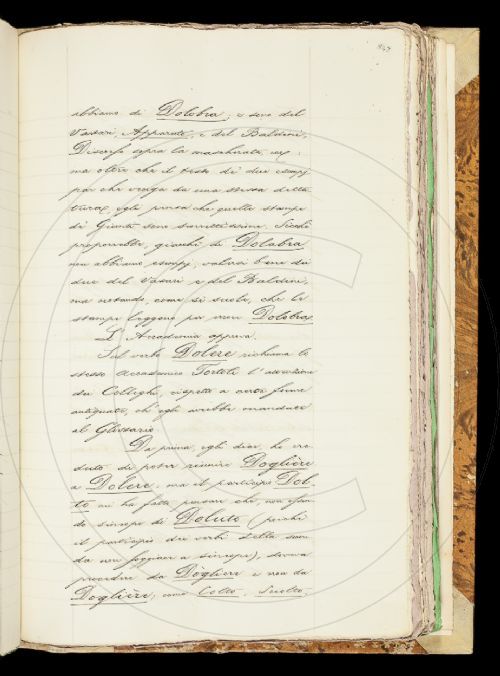 abbiamo di Dolobra, e sono del
Vasari, Apparato, e del Baldini,
Discorso sopra la mascherata, ec.;
ma oltre che il testo di due esempj
par che venga da una stessa detta
tura, egli pensa che quelle stampe
di Giunti sono scorrettissime. Sicchè
proporrebbe, giacchè di Dolabra
non abbiamo esempj, valersi bene dei
due del Vasari e del Baldini,
ma notando, come si suole, che le
stampe leggono per errore Dolobra.
L'Accademia approva.
Sul verbo Dolere richiama lo
stesso Accademico Tortoli l'attenzione
dei Colleghi, rispetto a certe forme
antiquate, ch'egli avrebbe mandate
al Glossario.
Da prima, egli dice, ho cre
duto di poter riunire Dogliere
a Dolere; ma il participio Dol-
to mi ha fatto pensare che, non essen
do sincope di Doluto (perchè
il participio dei verbi della secon
da non soggiace a sincope), doveva
procedere da Dògliere e non da
Doglière; come Colto, Sciolto,